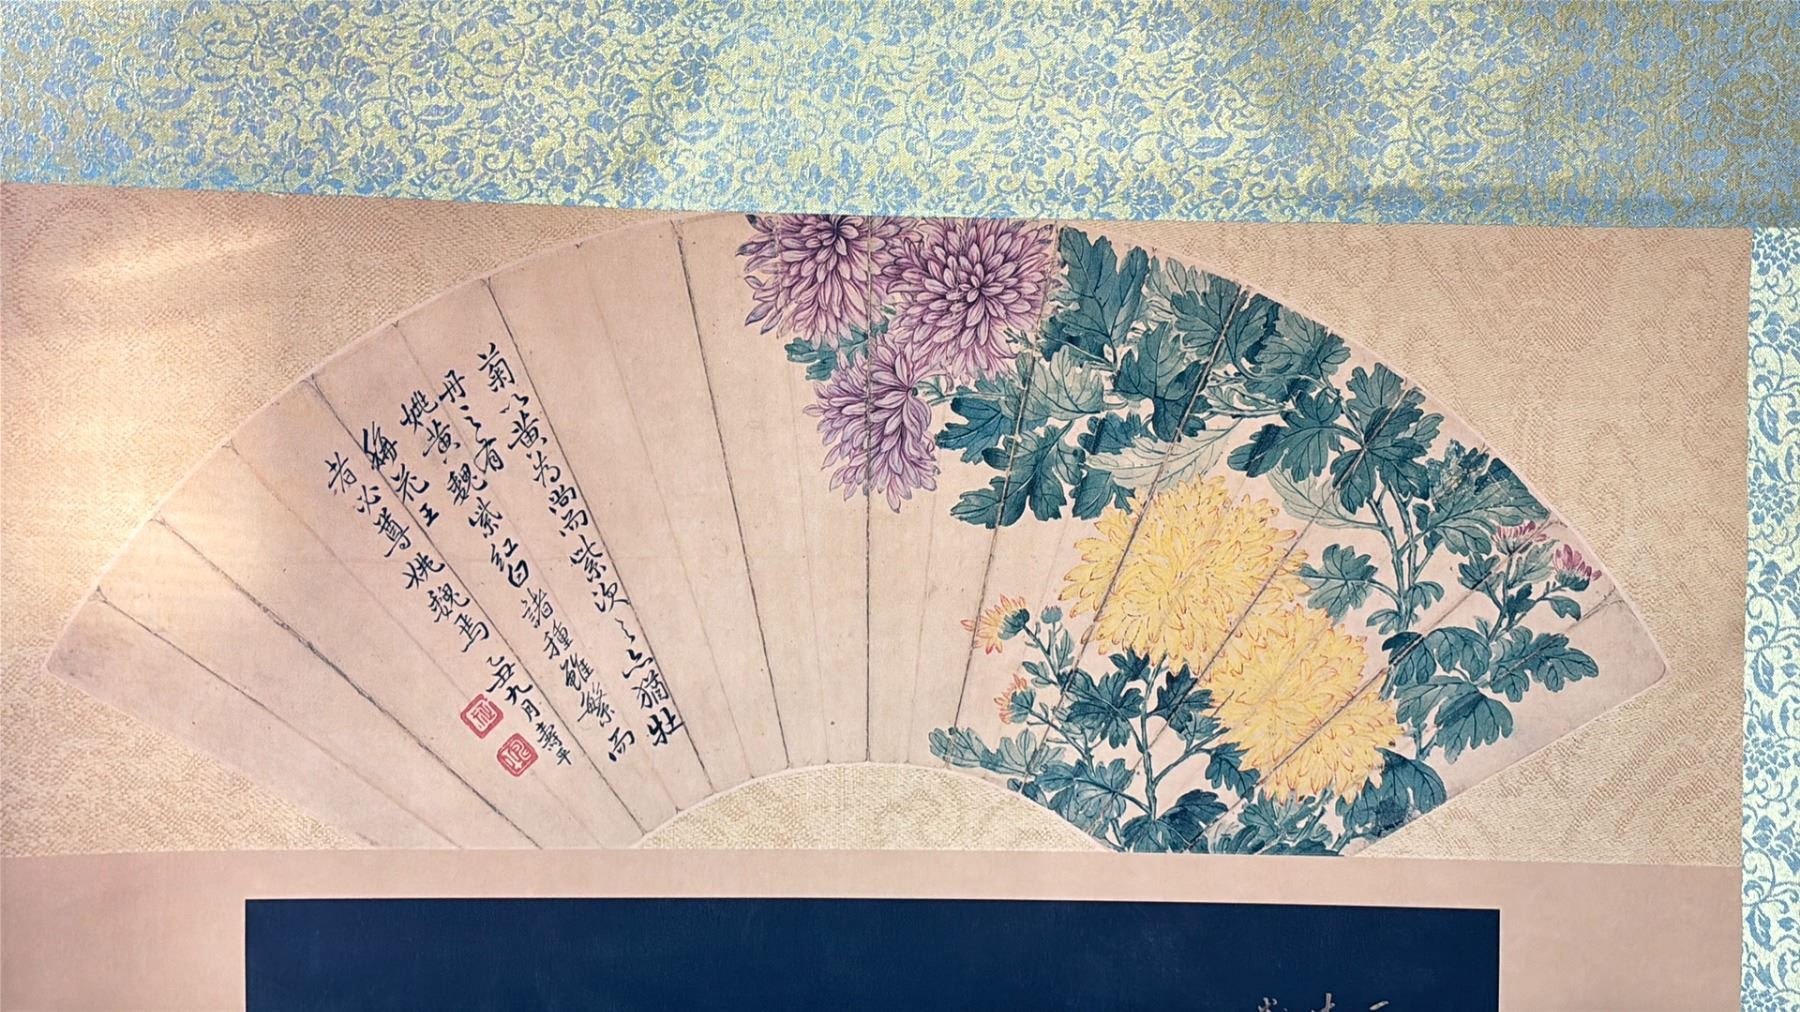 菊以黄為尚而紫次之亦猶牡
丹之有
姚黄魏紫紅白諸種雖繁而
稱花王
者必尊姚魏焉 乙丑九月 壽平